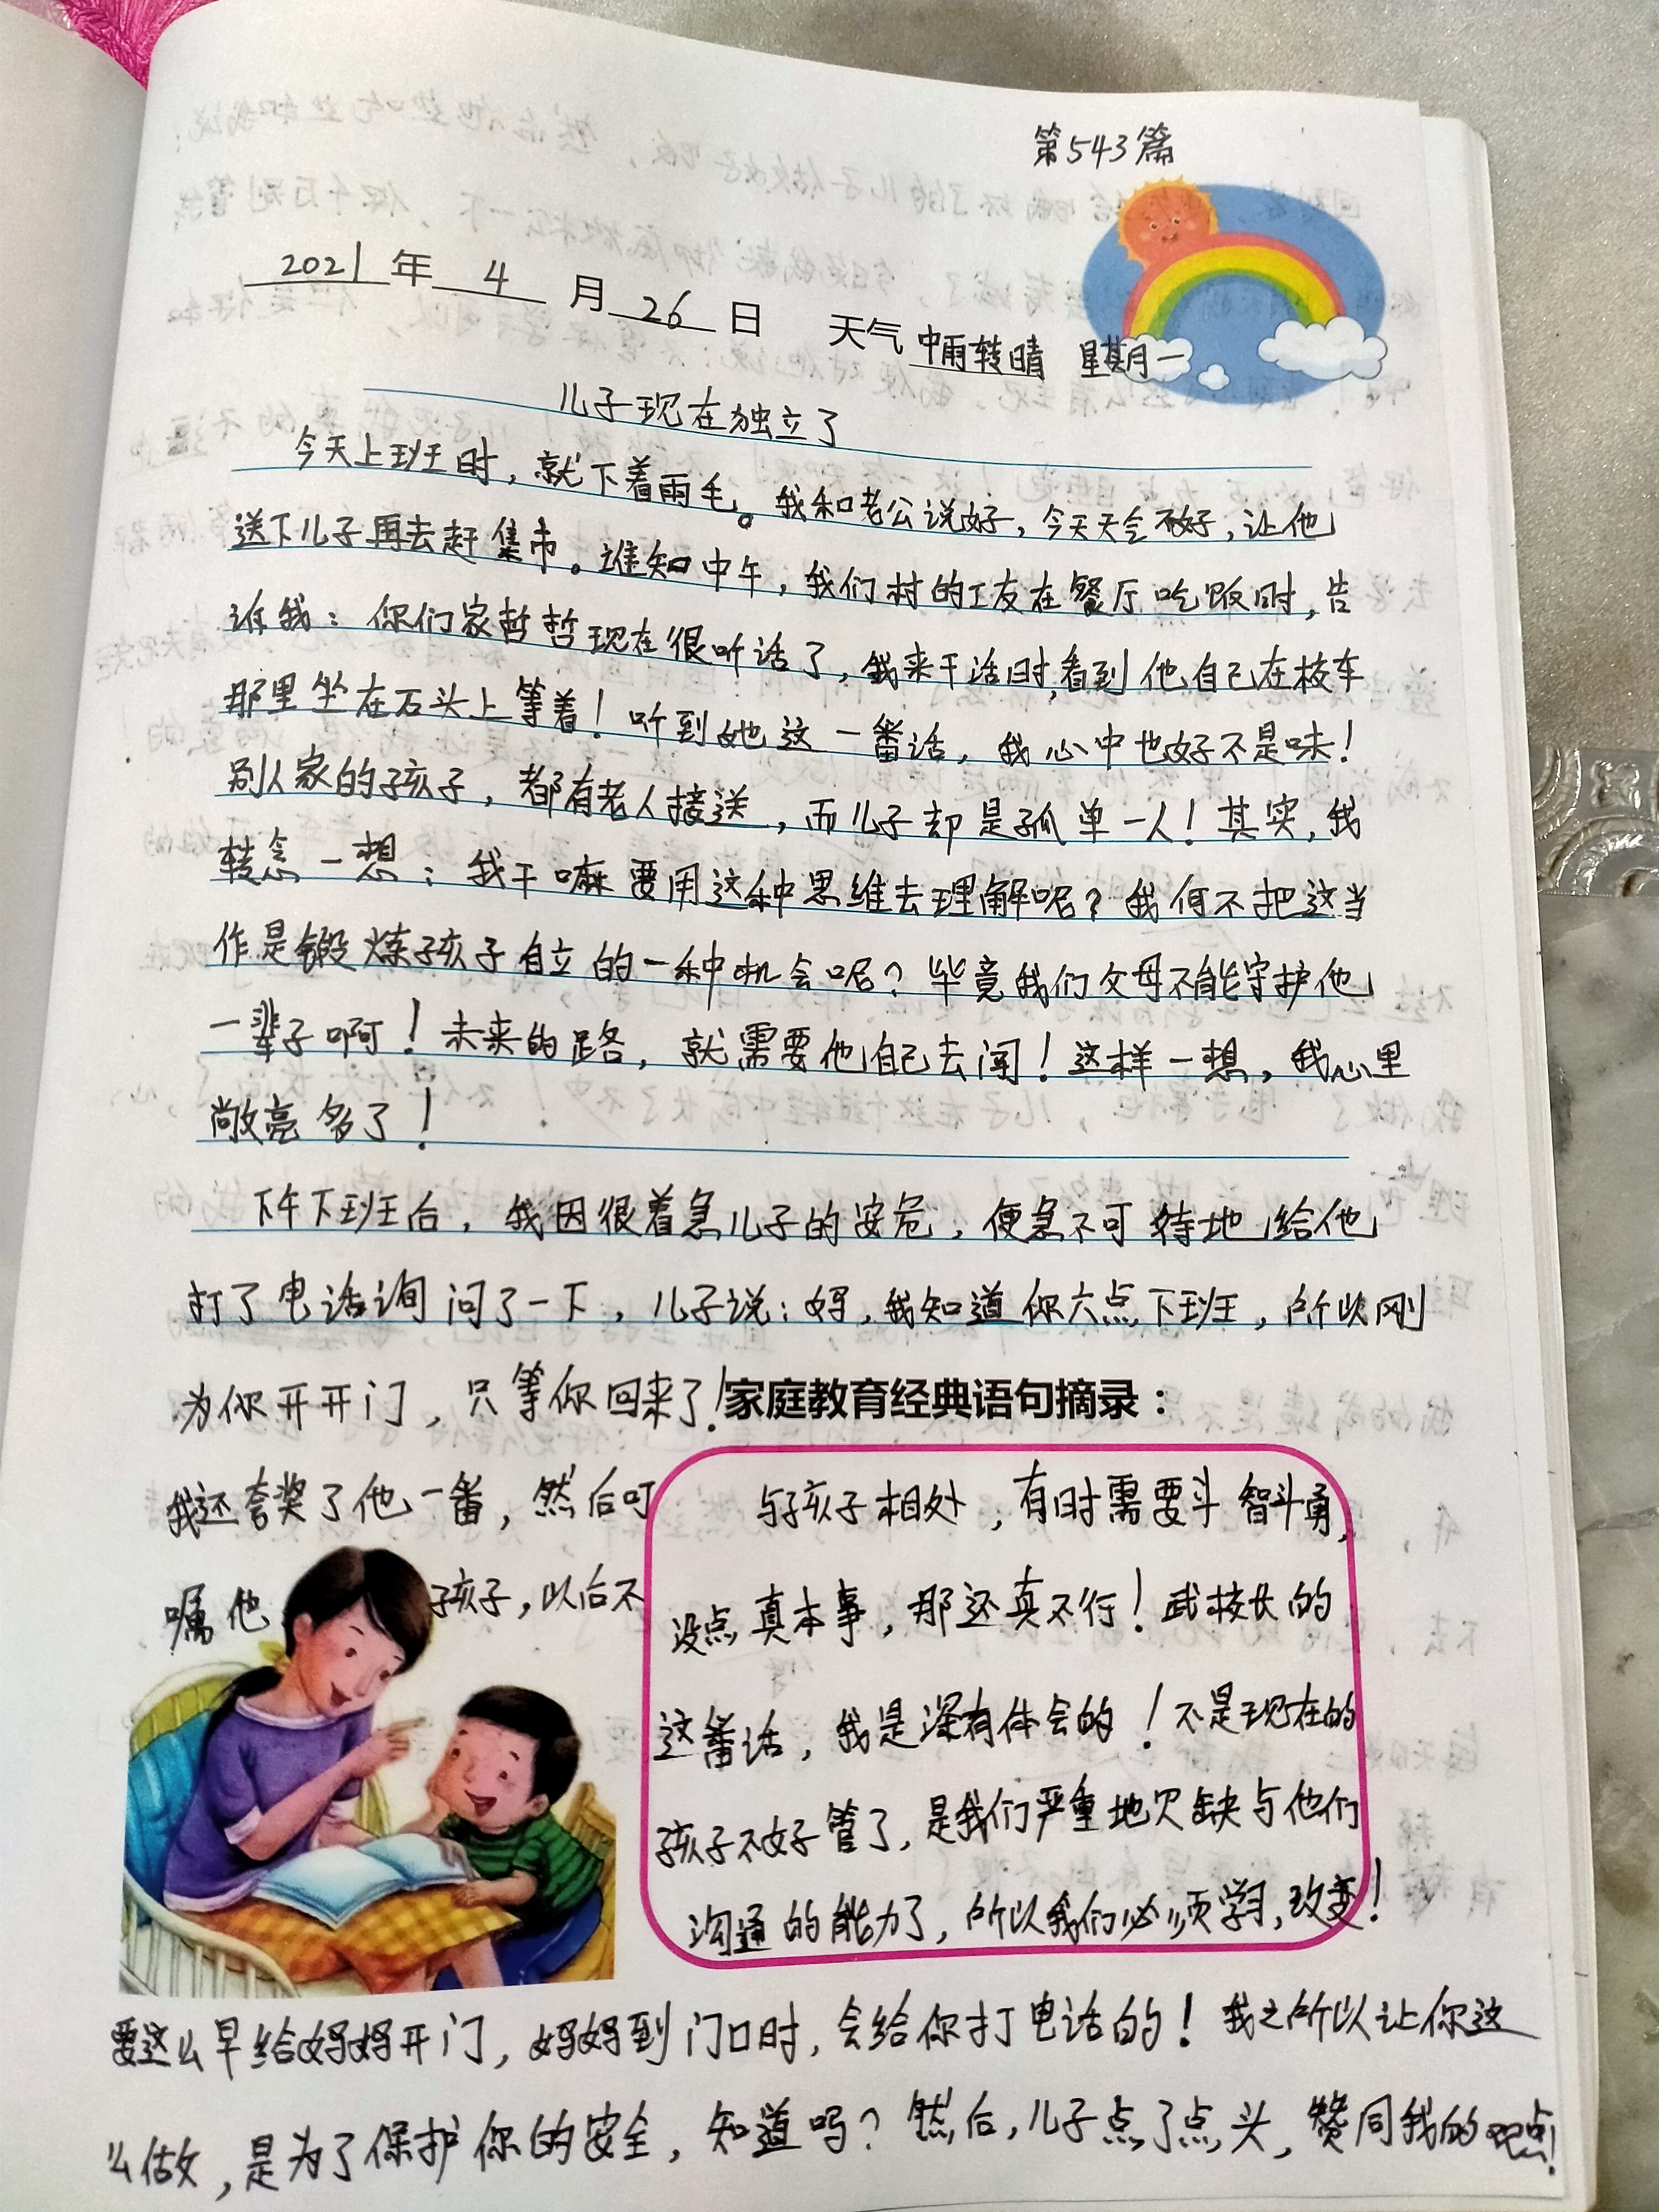 第543篇
2021年 4 月 26 日 天气 中雨转晴 星期一
儿子现在独立了
今天上班时，就下着雨毛。我和老公说好，今天天气不好，让他
送下儿子再去赶集市。谁知中午，我们村的工友在餐厅吃饭时，告
诉我：你们家哲哲现在很听话了，我来干活时，看到他自己在校车
那里坐在石头上等着！听到她这一番话，我心中也好不是味！
别人家的孩子，都有老人接送，而儿子却是孤单一人！其实，我
转念一想：我干嘛要用这种思维去理解呢？我何不把这当
作是锻炼孩子自立的一种机会呢？毕竟我们父母不能守护他
一辈子啊！未来的路，就需要他自己去闯！这样一想，我心里
敞亮多了！
下午下班后，我因很着急儿子的安危，便急不可待地给他
打了电话询问了一下，儿子说：妈，我知道你六点下班，所以刚
为你开开门，只等你回来了！
我还夸奖了他一番，然后叮
嘱他 孩子，以后不
家庭教育经典语句摘录：
与孩子相处，有时需要斗智斗勇，
没点真本事，那还真不行！武校长的
这番话，我是深有体会的！不是现在的
孩子不好管了，是我们严重地欠缺与他们
沟通的能力了，所以我们必须学习，改变！
要这么早给妈妈开门，妈妈到门口时，会给你打电话的！我之所以让你这
么做，是为了保护你的安全，知道吗？然后，儿子点了点头，赞同我的观点！